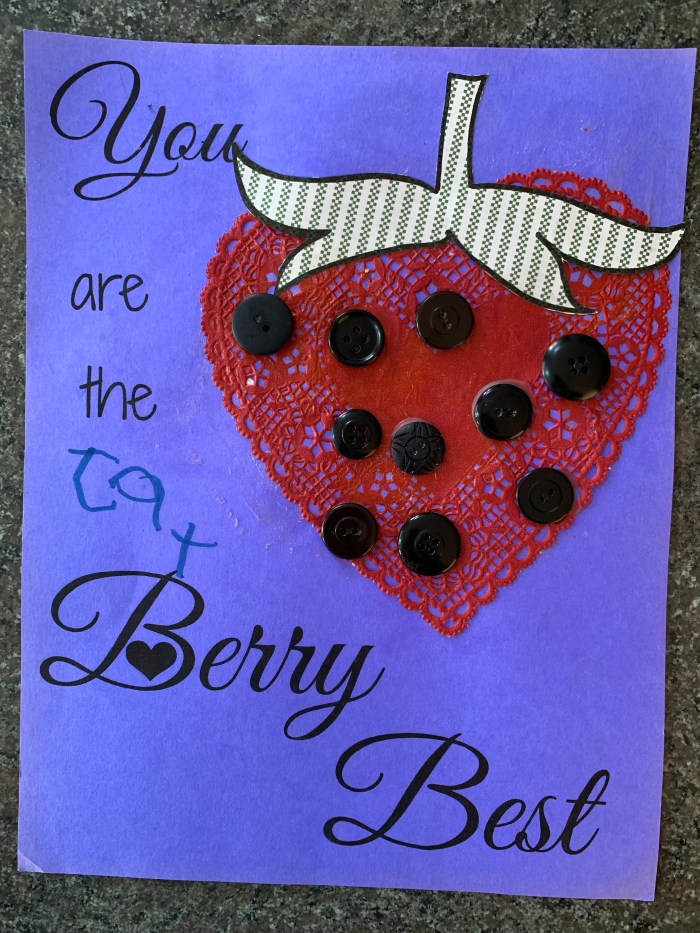 You
are
the
Berry
Best